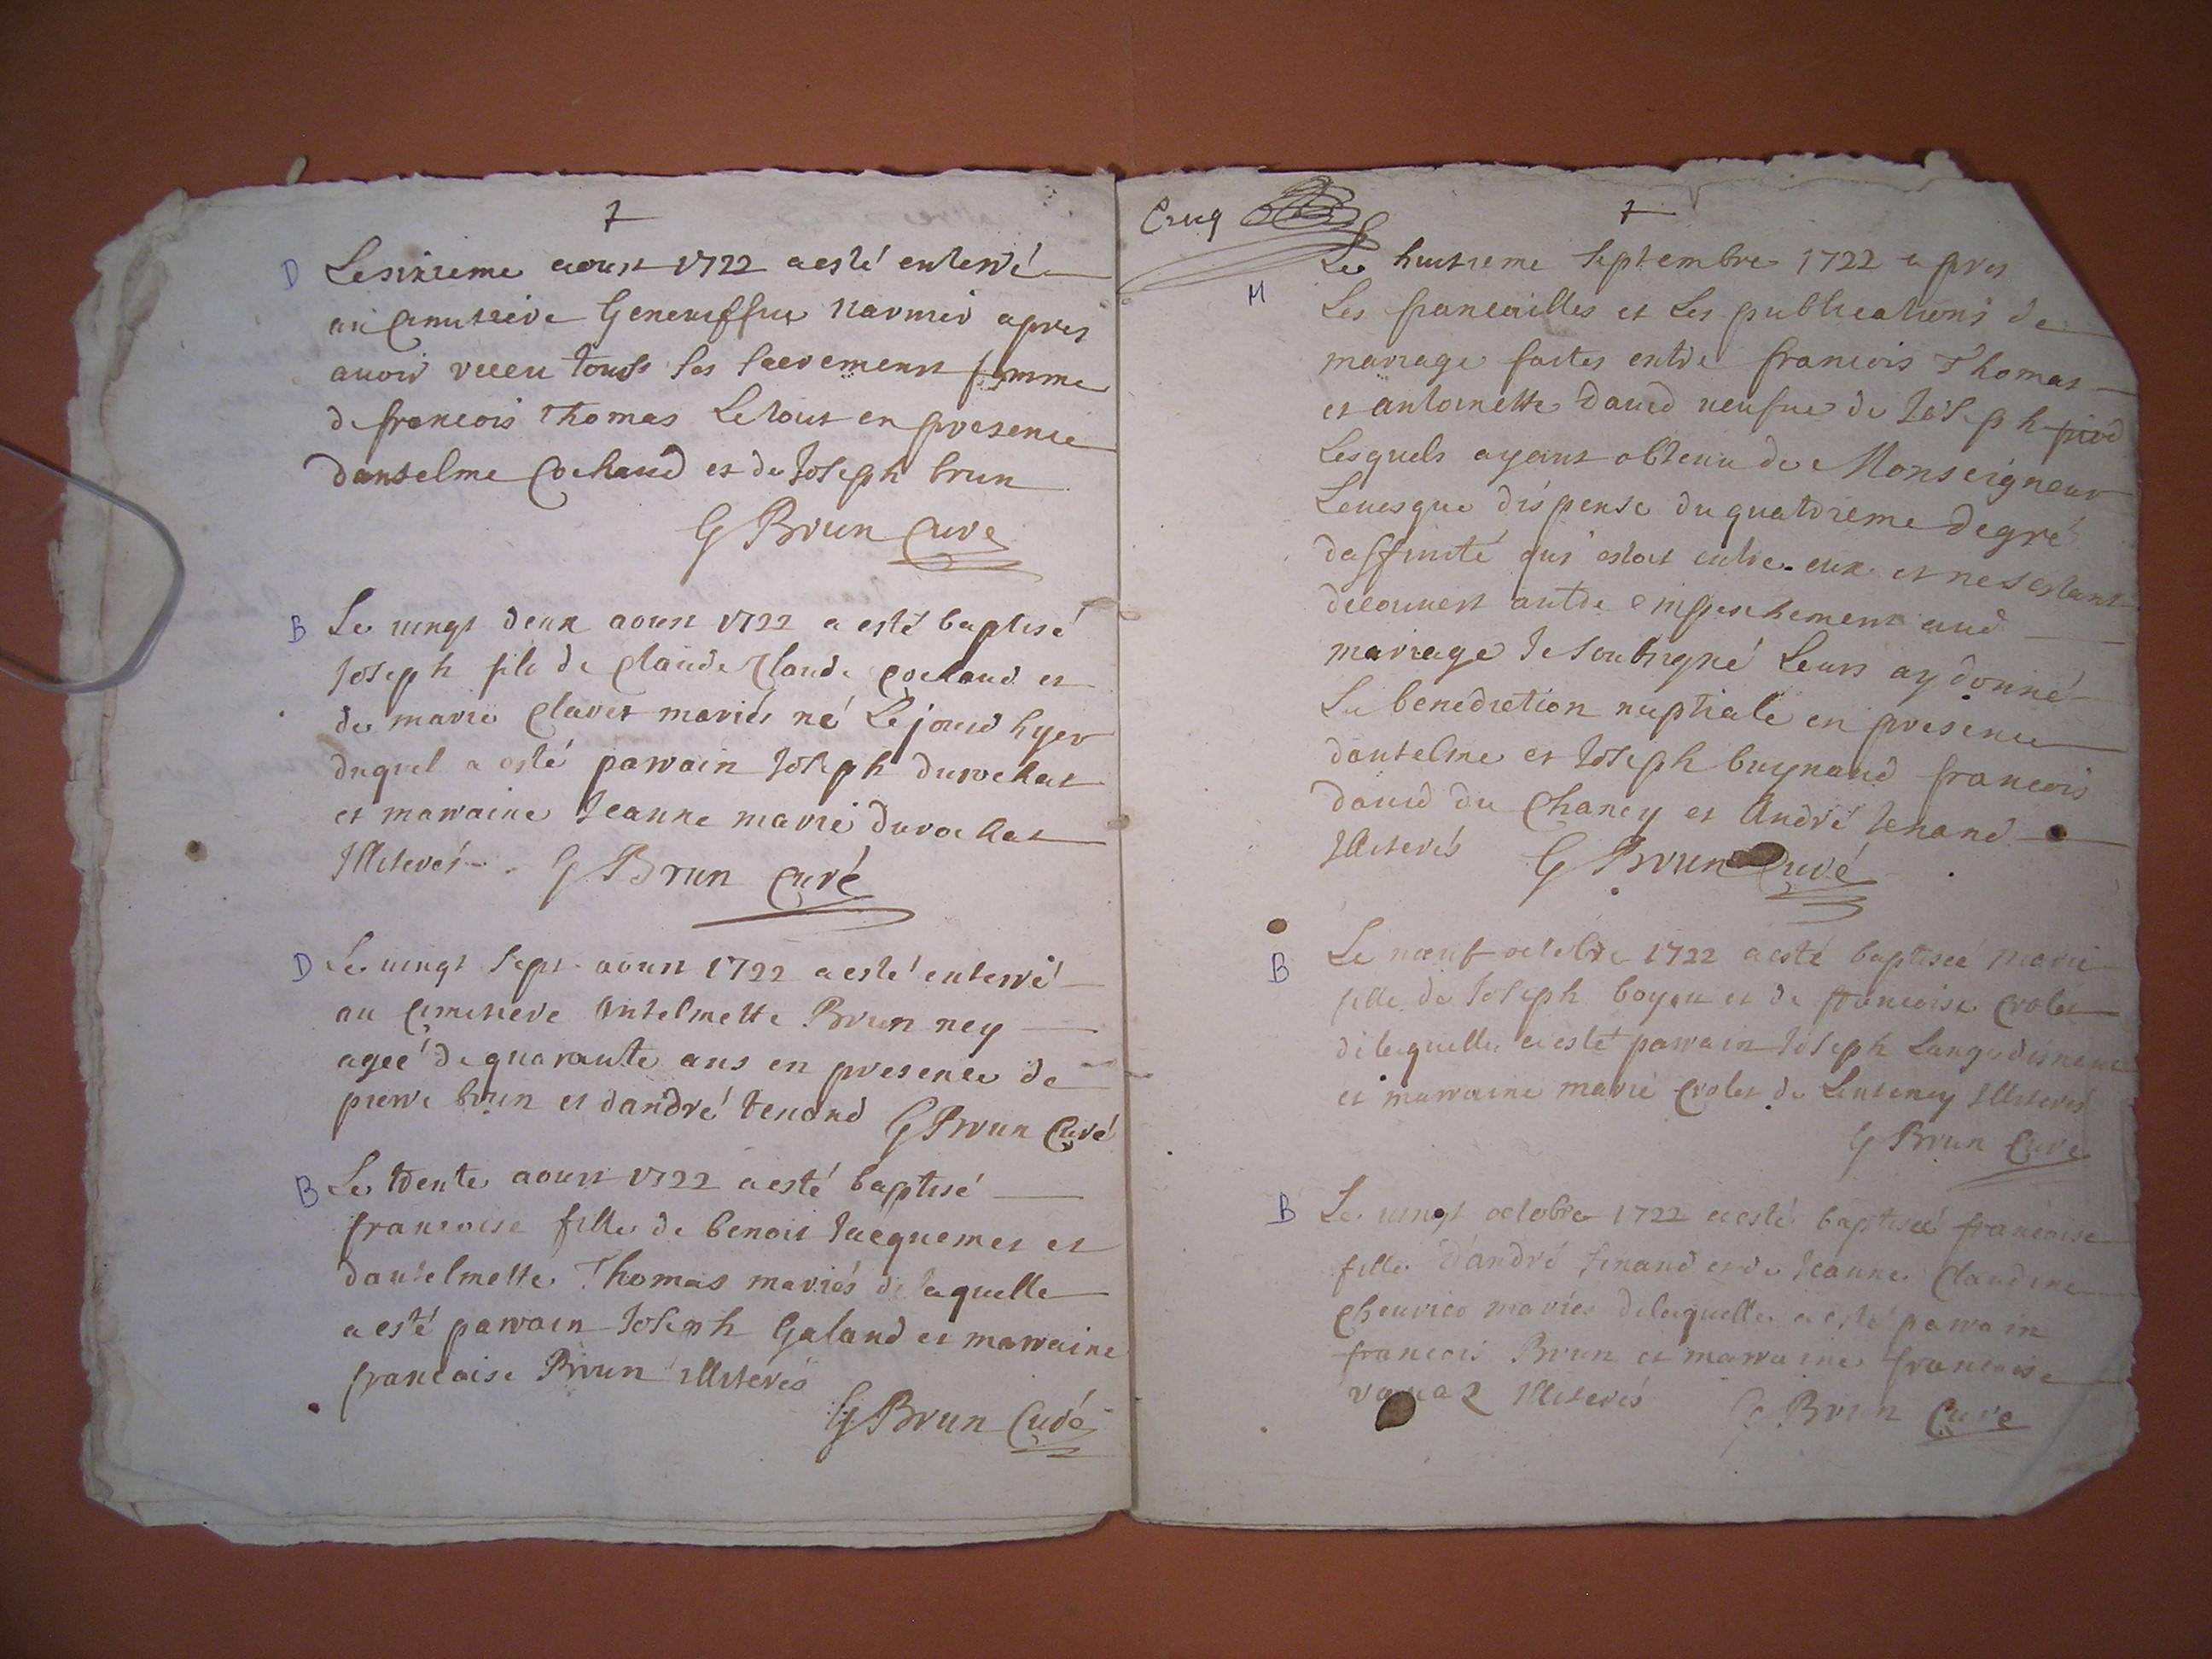 D
Le sixieme aoust 1722 a esté enterré
au Cimitiere Geneuiesfue narmier apres
auoir receu touts les sacrements femme
de francois Thomas Le tout en presence
danthelme Cochaud et de Joseph brun
G Brun Curé
B
Le uingt deux aoust 1722 a esté baptisé
Joseph fils de Claude Claude Cochaud et
de marie Clauet mariés né Le jour d hyer
duquel a esté parrain Joseph durochat
et marraine Jeanne marie durochat
Illiterés G Brun Curé
D
Le uingt sept aoust 1722 a esté enterré
au Cimitiere Antelmette Brun ney
ageé de quarante ans en presence de
pierre brun et dandré tenand G Brun Curé
B
Le trente aoust 1722 a esté baptisé
francoise fille de benoit Jacquemet et
dantelmette Thomas mariés de laquelle
a esté parrain Joseph Galand et marraine
francoise Brun illiterés
G Brun Curé
Cruq
M
Le huitieme septembre 1722 apres
Les fiancailles et Les publications de
mariage faites entre francois Thomas
et antoinette Dauid ueufue de Joseph
Lesquels ayant obtenu de Monseigneur
Leuesque dispense du quatrieme degré
daffinité qui estoit entre eux et ne sestant
decouuert autre empeschement aud
mariage Je soubsigné Leurs ay donné
La benediction nuptiale en presence
dantelme et Joseph buynand francois
dauid du Chaney et André tenand
Illiterés G Brun Curé
B
Le neuf octobre 1722 a esté baptisee marie
fille de Joseph et de francoise Crolet
de laquelle a esté parrain Joseph
et marraine marie Crolet de Lenteney Illiterés
G Brun Curé
B
Le uingt octobre 1722 a esté baptiseé francoise
fille dandré tenand et de Jeanne Claudine
mariés de laquelle a esté parrain
francois Brun et marraine francoise
Illiterés G Brun Curé